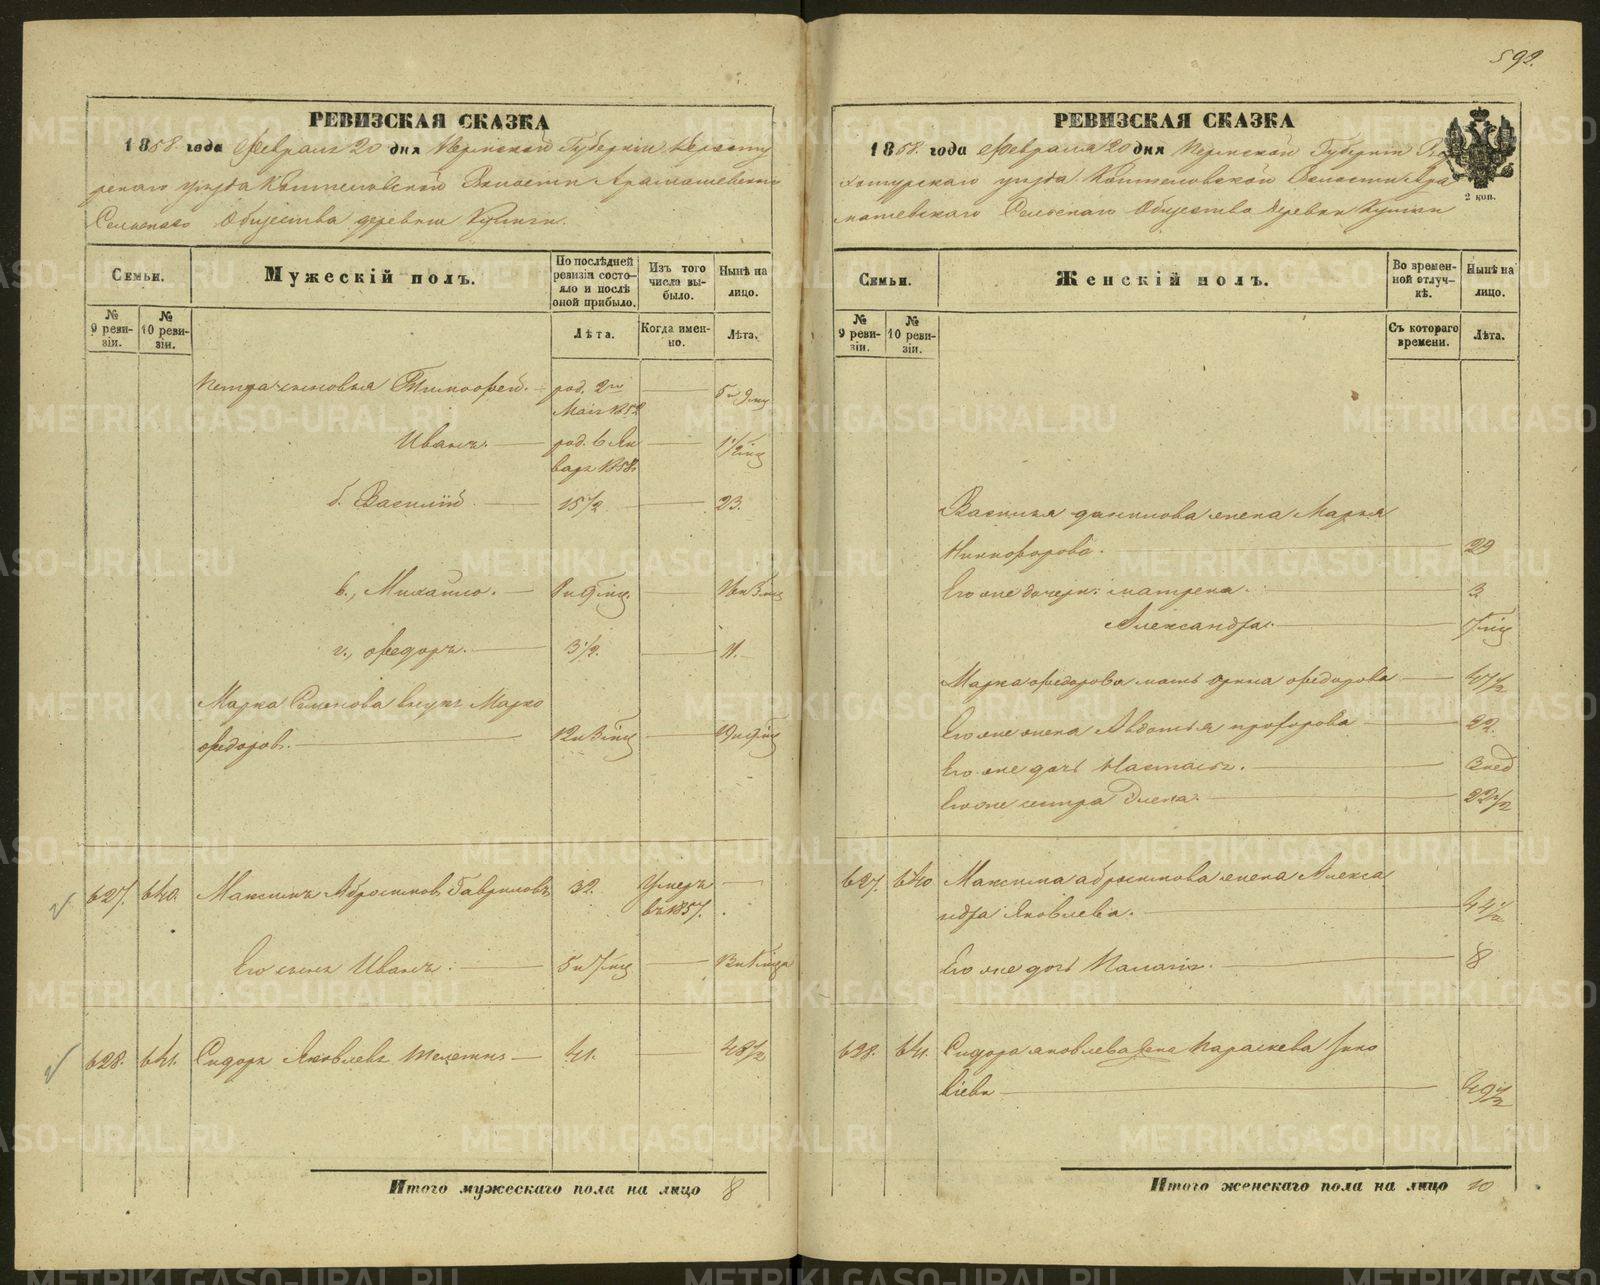 592.
РЕВИЗСКАЯ СКАЗКА
1858 года Февраля 20 дня Пермской Губернiи Верхоту
рскаго уѣзда Коптеловской Волости Арамашевскаго
Сельскаго Общества деревни
Семьи.
Мужескiй полъ.
По послѣдней ревизiи состояло и послѣ оной прибыло.
Изъ того числа выбыло.
Нынѣ на лицо.
№ 9 ревизiи.
№ 10 ревизiи.
Лѣта.
Когда именно.
Лѣта.
Петра сыновья Тимофей. род. 2го Мая 1852 5 и 9 мц
Иванъ. род. 6 Января 1858 1 1/2 мц
б. Василiй 15 1/2 23.
в., Михайло. 8 и 9 мц. 16 и 3 мц
г., Федоръ. 3 1/2. 11.
Марка Семенова внукъ Марко
Федоровъ. 12 и 3 мц 19 и 9 мц
627. 640. Максимъ Абросимовъ Гавриловъ 32. Умеръ въ 1857.
Его сынъ Иванъ. 5 и 7 мц 13 и 1 мца
628. 641. Сидоръ Яковлевъ 41. 48 1/2
Итого мужескаго пола на лицо 8
РЕВИЗСКАЯ СКАЗКА
1858. года Февраля 20 дня Пермской Губернiи Вер
хотурскаго уѣзда Коптеловской Волости Ара
машевскаго Сельскаго Общества деревни
2 коп.
Семьи.
Женскiй полъ.
Во временной отлучкѣ.
Нынѣ на лицо.
№ 9 ревизiи.
№ 10 ревизiи.
Съ котораго времени.
Лѣта.
Василья данилова жена Марья
Никифорова. 23
Его же дочери: матрена. 3
Александра. мц
Марка Федорова мать Ирина Федорова 47 1/2
Его же жена Авдотья прохорова 22.
Его же дочь Настасья. 3 нед
Его же сестра Елена. 22 1/2
627. 640. Максима абросимова жена Алекса
ндра Яковлева. 44 1/2
Его же дочь Палагiя. 8
628. 641. Сидора яковлева жена Параскева Зино
вiева 49 1/2
Итого женскаго пола на лицо 10
METRIKI.GASO-URAL.RU